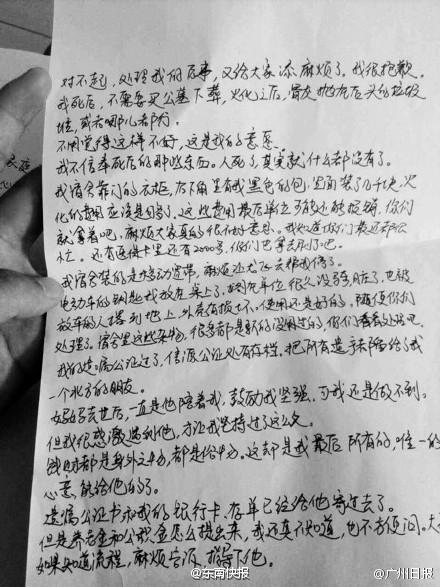 对不起，处理我们后事，又给大家添麻烦了。我很抱歉。
我死后，不需要买公墓下葬，火化之后，骨灰抛洒后头的垃圾
堆，或者哪儿都行。
不用觉得这样不好，这是我的意愿。
我不信奉死后的那些东西。人死了，其实就什么都没有了。
我宿舍靠门的衣柜左下角里有我黑色的包，里面装了几千块，火
化的费用应该是够了，这些费用最后单位可能还能报销，你们
就拿着吧，麻烦大家真的很不好意思。我知道你们最近都很
忙。还有这件卡里还有2000多，你们也拿去用了吧。
我宿舍装的是移动宽带，麻烦过去帮我停了。
电动车的钥匙我放在桌上了，
放车的人撂到地上，外表有损坏，使用还是好的，随便你们
处理了。宿舍里这些杂物，很多都是新的没用过的，你们看着处理吧。
我的遗嘱公证过了，公证处有存档，把所有遗产都留给了我
一个北方的朋友。
妈妈去世后，一直是他陪着我，鼓励我坚强，可我还是做不到。
但我很感激遇到他，才让我坚持了这么久
钱财都是身外之物，都是给他的。这却是我最后所有的，唯一的
心意能给他的了。
遗嘱公证书和我的银行卡、存单已经给他寄过去了。
但是养老金和公积金怎么提出来，我还真不知道，也不方便问。大
如果知道流程，麻烦告诉、指导下他。
@东南快报
@广州日报